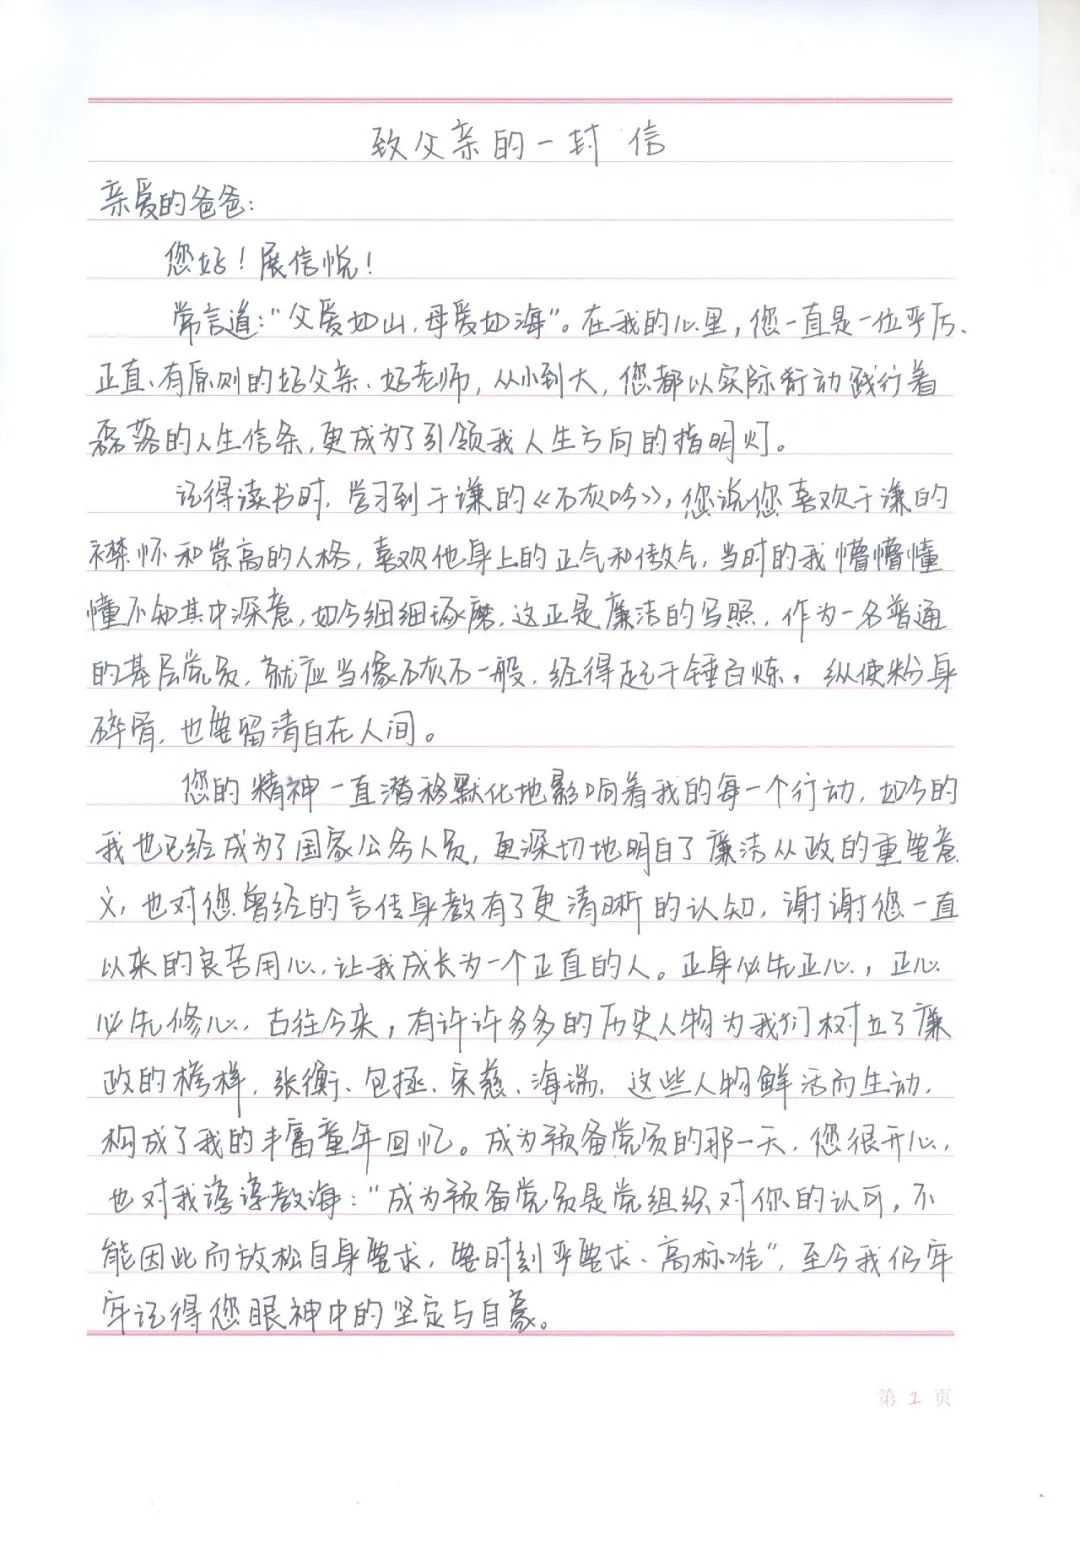 致父亲的一封信
亲爱的爸爸：
您好！展信悦！
常言道：“父爱如山，母爱如海”。在我的心里，您一直是一位严厉、
正直、有原则的好父亲、好老师，从小到大，您都以实际行动践行着
磊落的人生信条，更成为了引领我人生方向的指明灯。
记得读书时，学习到于谦的《石灰吟》，您说您喜欢于谦的
襟怀和崇高的人格，喜欢他身上的正气和傲气，当时的我懵懵懂
懂不知其中深意，如今细细琢磨，这正是廉洁的写照，作为一名普通
的基层党员，就应当像石灰石一般，经得起千锤百炼，纵使粉身
碎骨，也要留清白在人间。
您的精神一直潜移默化地影响着我的每一个行动，如今的
我也已经成为了国家公务人员，更深切地明白了廉洁从政的重要意
义，也对您曾经的言传身教有了更清晰的认知，谢谢您一直
以来的良苦用心，让我成长为一个正直的人。正身必先正心，正心
必先修心，古往今来，有许许多多的历史人物为我们树立了廉
政的榜样，张衡、包拯、宋慈、海瑞，这些人物鲜活而生动，
构成了我的丰富童年回忆。成为预备党员的那一天，您很开心，
也对我谆谆教海：“成为预备党员是党组织对你的认可，不
能因此而放松自身要求，要时刻严要求、高标准”，至今我仍牢
牢记得您眼神中的坚定与自豪。
第 1 页